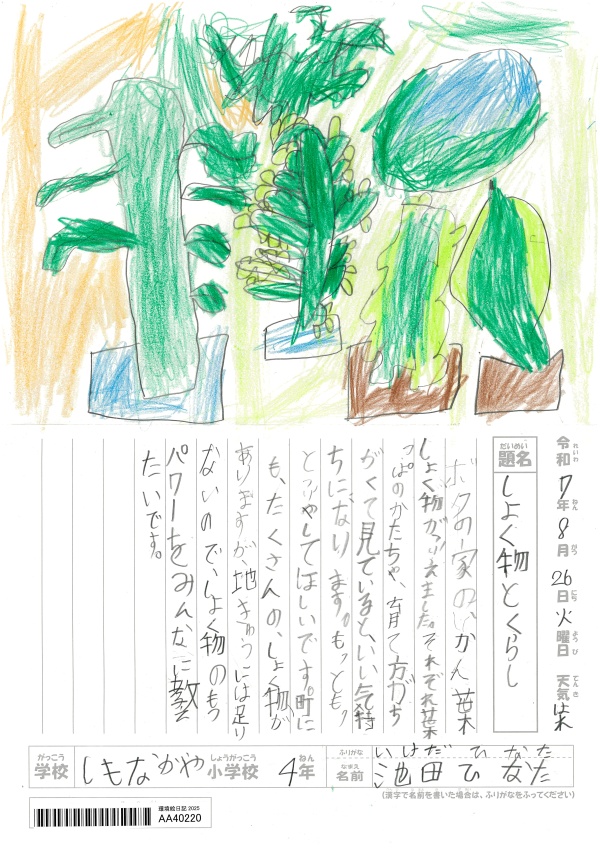 令和7年8月26日火曜日 天気 
れいわ ねん がつ にち ようび てんき
だいめい
題名 しょく物とくらし
ボクの家の、かん葉
しょく物がふえました。それぞれ葉
っぱのかたちや、育て方がち
がくて見ているといい気持
ちになります。もっともっ
とふやしてほしいです。町に
も、たくさんの、しょく物が
ありますが、地きゅうには足り
ないので、しょく物のもつ
パワーをみんなに教え
たいです。
がっこう しょうがっこう ねん
学校 しもなかや小学校 4年
ふりがな いけだ ひなた
なまえ
名前 池田ひなた
(漢字で名前を書いた場合は、ふりがなをふってください)
環境絵日記 2025
AA40220